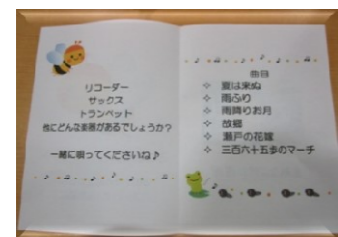 リコーダー
サックス
トランペット
他にどんな楽器があるでしょうか？
一緒に唄ってくださいね♪
曲目
夏は来ぬ
雨ふり
雨降りお月
故郷
瀬戸の花嫁
三百六十五歩のマーチ